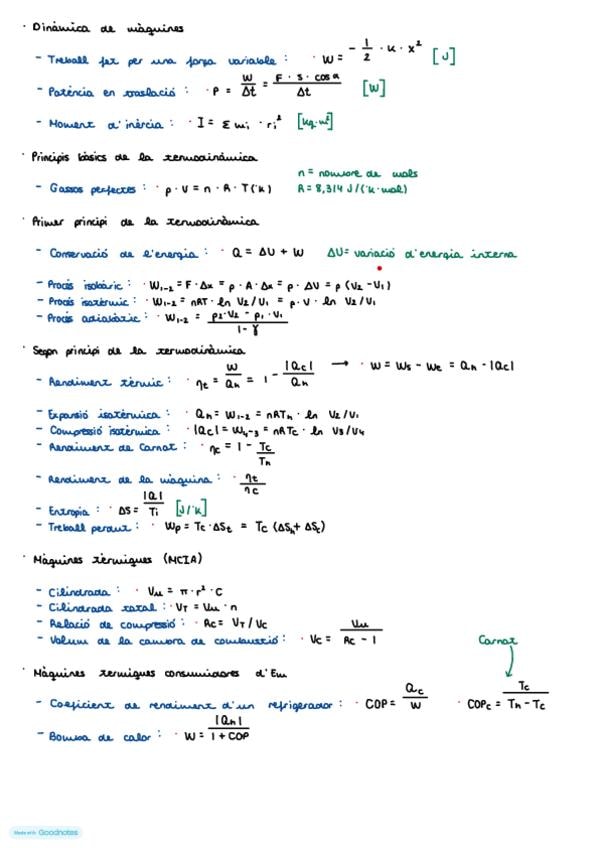 · Dinàmica de màquines
- Treball fet per una força variable : · W = - 1/2 · K · x² [J]
- Potència en traslació : · P = W/Δt = F · s · cosα/Δt [W]
- Moment d'inèrcia : · I = Σ mi · ri² [kg·m²]
· Principis bàsics de la termodinàmica
n = nombre de mols
- Gassos perfectes : · p · V = n · R · T(ˑK) R = 8,314 J/(ˑK·mol)
· Primer principi de la termodinàmica
- Conservació de l'energia : · Q = ΔU + W ΔU= variació d'energia interna
- Procés isobàric : · W1-2 = F · Δx = p · A · Δx = p · ΔV = p (V2 - V1)
- Procés isotèrmic : · W1-2 = nRT · ln V2/V1 = p · V · ln V2/V1
- Procés adiabàtic : · W1-2 = p2·V2 - p1·V1/1-γ
Segon principi de la termodinàmica
- Rendiment tèrmic : · ηt = W/Qh = 1 - |Qc|/Qh → · W = Ws - We = Qh - |Qc|
- Expansió isotèrmica : · Qh = W1-2 = nRTh · ln V2/V1
- Compressió isotèrmica : · |Qc| = W4-3 = nRTc · ln V3/V4
- Rendiment de Carnot : · ηc = 1 - Tc/Th
- Rendiment de la màquina : · ηt/ηc
- Entropia : · ΔS = |Q|/Ti [J/ˑK]
- Treball perdut : · Wp = Tc · ΔSt = Tc (ΔSh + ΔSc)
· Màquines tèrmiques (MCIA)
- Cilindrada : · Vu = π · r² · C
- Cilindrada total : · VT = Vu · n
- Relació de compressió : · Rc = VT / Vc
- Volum de la cambra de combustió : · Vc = Vu/Rc - 1
Carnot
· Màquines tèrmiques consumidores d'Em
- Coeficient de rendiment d'un refrigerador : · COP = Qc/W · COPc = Tc/Th - Tc
- Bomba de calor : · W = |Qh|/1 + COP
Made with Goodnotes